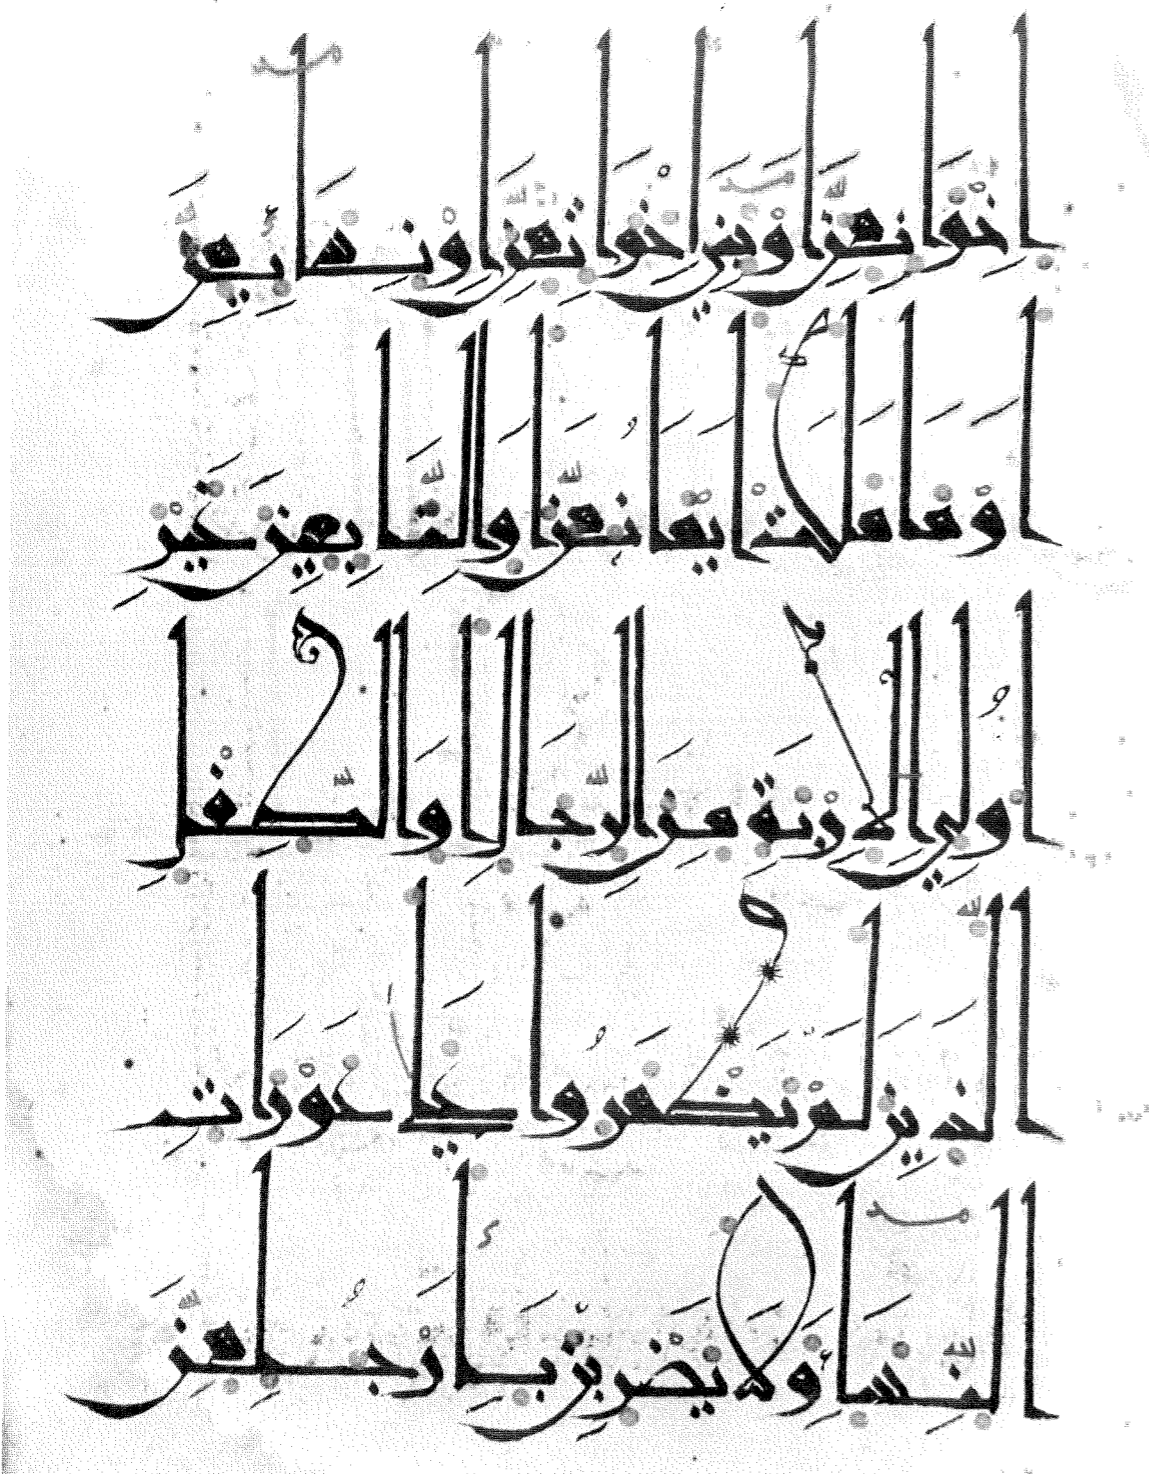 إِخْوَانِهِنَّ أَوْ بَنِي إِخْوَانِهِنَّ أَوْ بَنِي أَخَوَاتِهِنَّ أَوْ نِسَائِهِنَّ
أَوْ مَا مَلَكَتْ أَيْمَانُهُنَّ أَوِ التَّابِعِينَ غَيْرِ
أُولِي الْإِرْبَةِ مِنَ الرِّجَالِ أَوِ الطِّفْلِ
الَّذِينَ لَمْ يَظْهَرُوا عَلَى عَوْرَاتِ
النِّسَاءِ وَلَا يَضْرِبْنَ بِأَرْجُلِهِنَّ